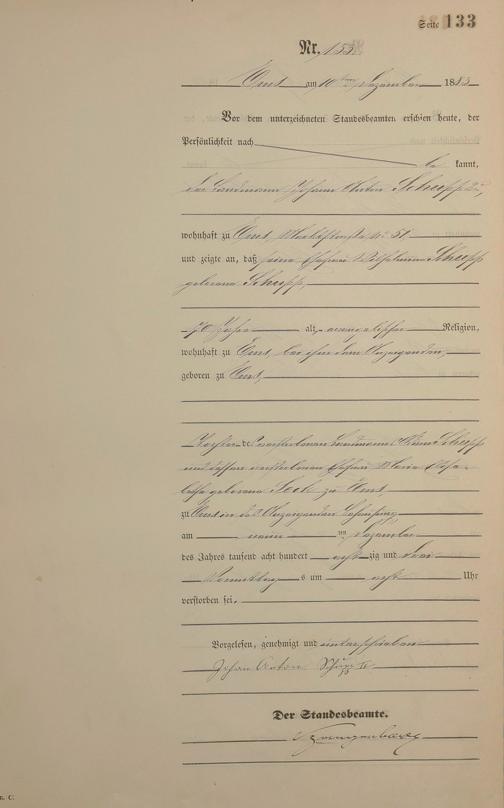 Seite 133
Nr. 153
Ems am 10ten Dezember 1883
Vor dem unterzeichneten Standesbeamten erschien heute, der
Persönlichkeit nach
be kannt,
der Landmann Johann Anton Schupp
wohnhaft zu Ems, No 51,
und zeigte an, daß seine Ehefrau Wilhelmine Schupp
geborene Schupp,
70 Jahre alt, evangelischer Religion,
wohnhaft zu Ems, bei ihm dem Anzeigenden,
geboren zu Ems,
Tochter des verstorbenen Landmanns Schupp
und dessen verstorbenen Ehefrau Maria Elisa-
betha geborene zu Ems,
zu Ems in des Anzeigenden Behausung,
am neunten Dezember
des Jahres tausend acht hundert achtzig und drei
Vormittags um acht Uhr
verstorben sei.
Vorgelesen, genehmigt und unterschrieben
Johan Anton Schupp II
Der Standesbeamte.